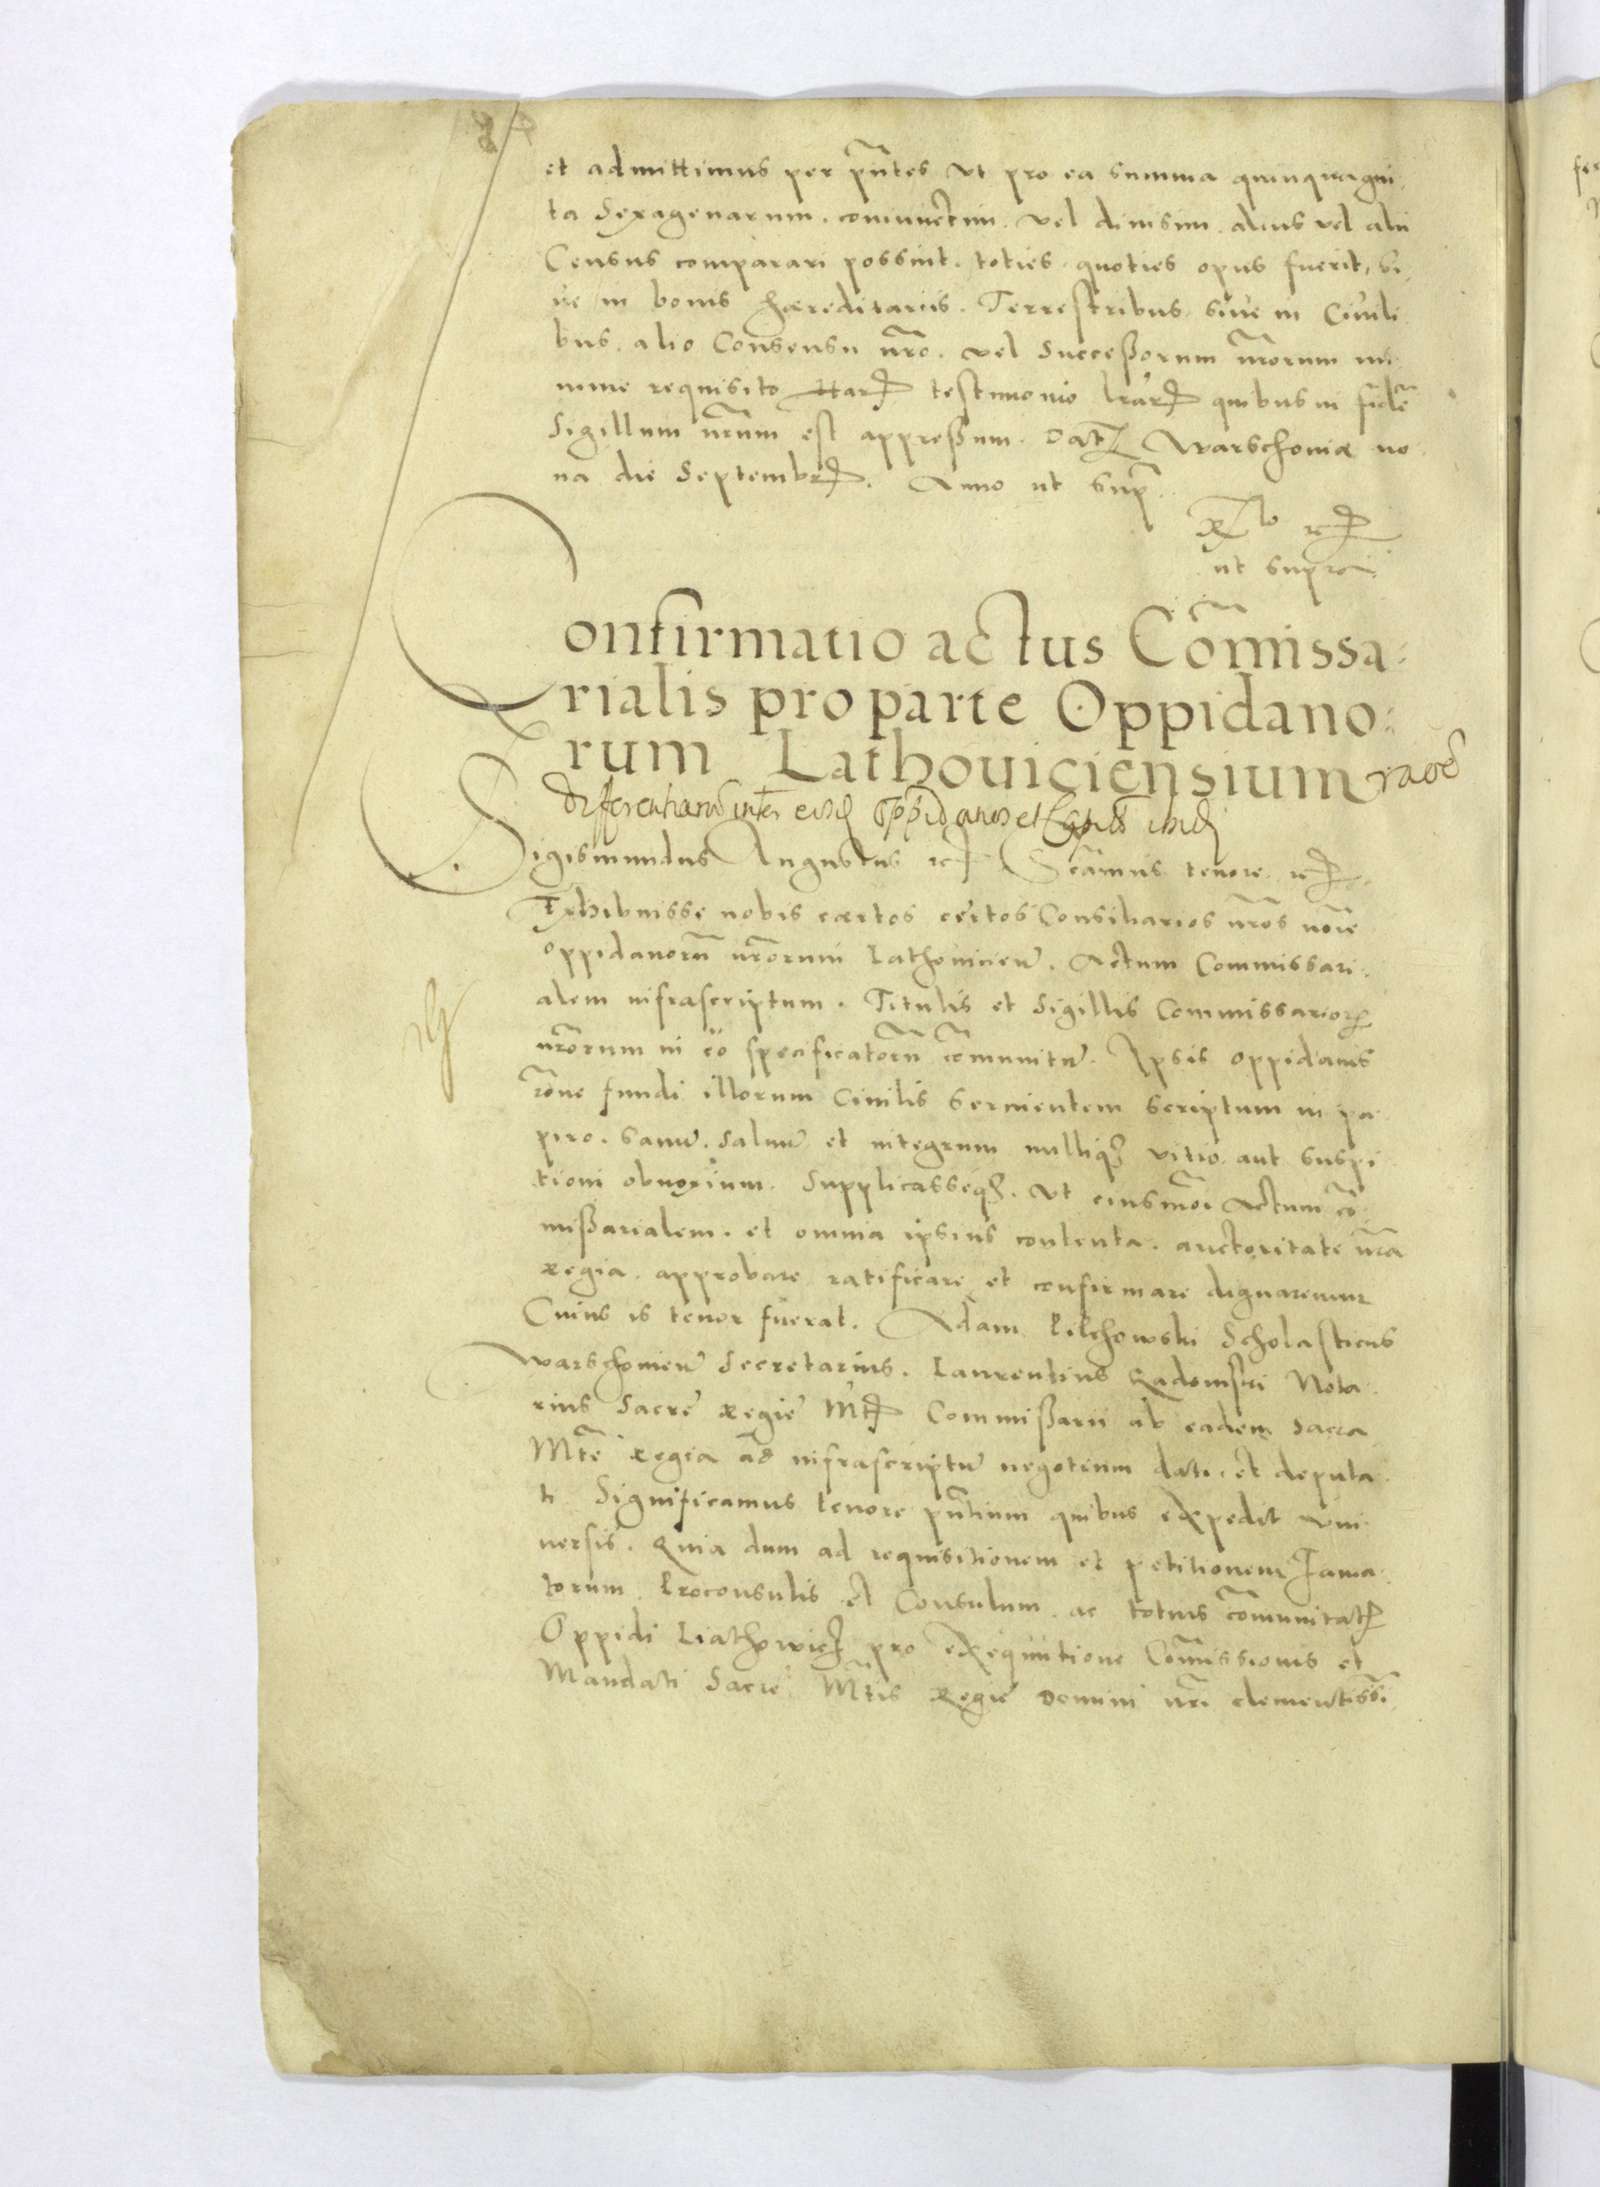 et admittimus per p̃ntes vt pro ea summa quinquagin
ta Sexagenarum. coniunctim. vel diuisim. alius vel alii
Census comparari possint. toties quoties opus fuerit, si
ue in bonis hæreditariis. Terrestribus siue in Ciuili
bus. alio Consensu ñro. vel Successorum ñrorum mi
nime requisito Har testimonio lrar quibus in fidẽ
Sigillum ñrum est appressum. Dat Warschouiæ no
na die Septembr. Anno ut sup
ut supra
Confirmatio actus Com̃issa
rialis pro parte Oppidano
rum Lathouiciensium
Sigismundus Augustus
tenore
Exhibuisse nobis certos Consiliarios ñros noĩe
oppidanorũ ñrorum Lathouicieñ. Actum Commissari
alem infrascriptum. Titulis et Sigillis Commissarior
ñrorum in eo specificatorũ com̃unitũ. Ipsis oppidanis
rõne fundi illorum Ciuilis seruientem scriptum in pa
piro. sanũ. saluũ et integrum nulliq vitio aut suspi
tioni obnoxium. Supplicasseq. vt eiusmõi Actum cõ
missarialem. et omnia ipsius contenta. auctoritate ñra
regia. approbare ratificare et confirmare dignaremur
Cuius is tenor fuerat. Adam Pilchowski Scholasticus
Warschouieñ Secretarius. Laurentius Radomski Nota
rius Sacre Regie Mt Commissarii ab eadem sacra
Mt̃e Regia ad infrascriptũ negotium dati et deputa
ti Significamus tenore p̃ntium quibus expedit vni
uersis. Quia dum ad requisitionem et petitionem Fama
torum Proconsulis et Consulum ac totius com̃unitat
Oppidi Liathowic pro exequutione Com̃issionis et
Mandati Sacre Mt̃is Regie Domini ñri clementissi